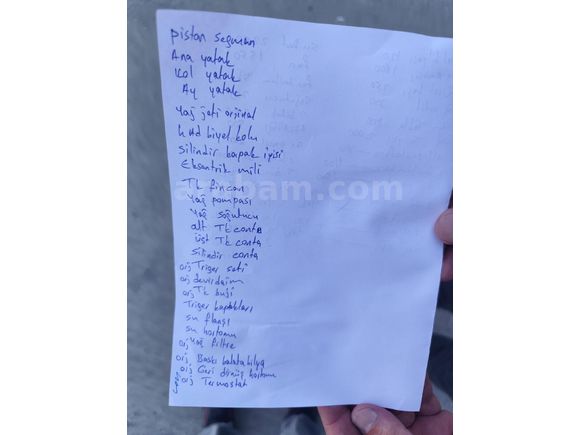 piston segman
Ana yatak
Kol yatak
Ay yatak
Yağ jeti orjinal
biyel kolu
Silindir kapak iyisi
Eksantrik mili
Tk fincan
Yağ pompası
Yağ soğutucu
alt Tk conta
üst Tk conta
Silindir conta
orj Triger seti
orj devirdaim
orj Tk buji
Triger kapakları
su flanşı
su hortumu
orj Yağ filtre
orj Baskı balata bilya
orj Geri dönüş hortumu
orj Termostat
arabam.com